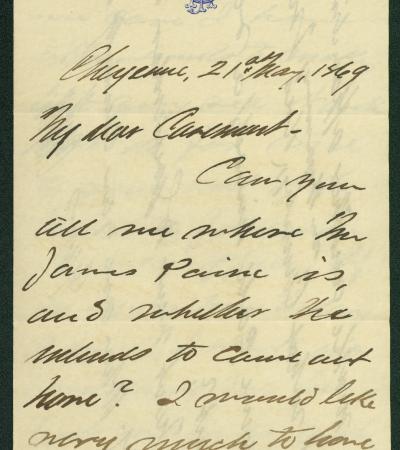 Cheyenne, 21st May, 1869
My dear Casement -
Can you
tell me where Mr
James Paine is,
and whether he
intends to come out
here? I would like
very much to have